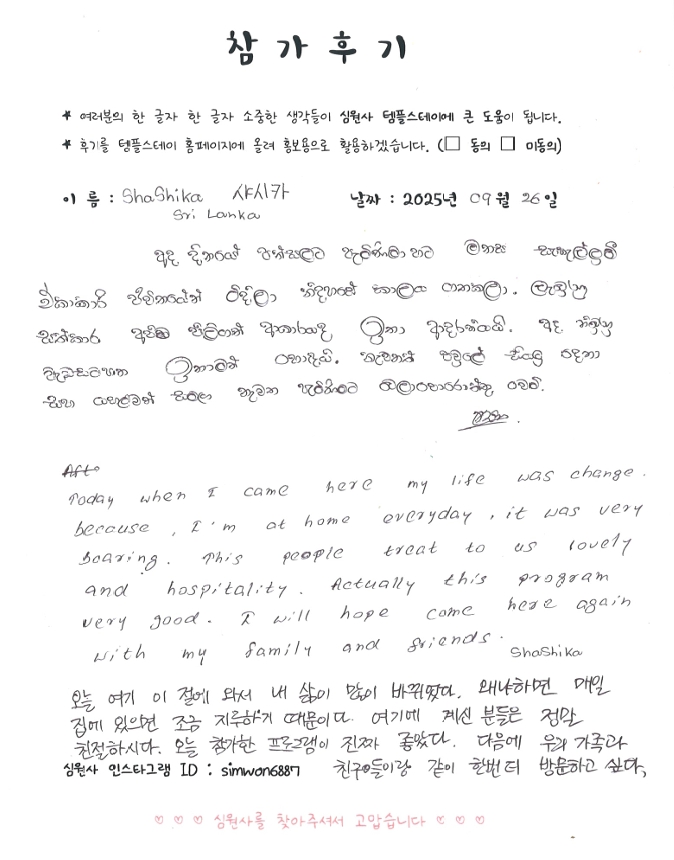 참가후기
* 여러분의 한 글자 한 글자 소중한 생각들이 심원사 템플스테이에 큰 도움이 됩니다.
* 후기를 템플스테이 홈페이지에 올려 홍보용으로 활용하겠습니다. (□ 동의 □ 미동의)
이 름 : ShaShika 샤시카 날짜 : 2025년 09월 26일
Sri Lanka
අද දිනයේ පන්සලට පැමිණිලා හට මනස සැහැල්ලුවී
ඒකාකාරී ජීවිතයෙන් මිදිලා නිදහසේ කාලය ගතකලා. ලැබුනු
සත්කාර අපිව පිලිගත් ආකාරයද ඉතා ආදරණීයයි. අද තිබුනු
වැඩසටහන ඉතාමත් හොදයි. නැවතත් පවුලේ සියලු දෙනා
සහ යහළුවන් සමග නැවත පැමිණීමට බලාපොරොත්තු වෙමි.
Today when I came here my life was change.
because, I'm at home everyday, it was very
boaring. This people treat to us lovely
and hospitality. Actually this program
very good. I will hope come here again
with my family and friends.
ShaShika
오늘 여기 이 절에 와서 내 삶이 많이 바뀌었다. 왜냐하면 매일
집에 있으면 조금 지루하기 때문이다. 여기에 계신 분들은 정말
친절하시다. 오늘 참가한 프로그램이 진짜 좋았다. 다음에 우리 가족과
심원사 인스타그램 ID : simwon6887 친구들이랑 같이 한번 더 방문하고 싶다.
♡ ♡ ♡ 심원사를 찾아주셔서 고맙습니다 ♡ ♡ ♡